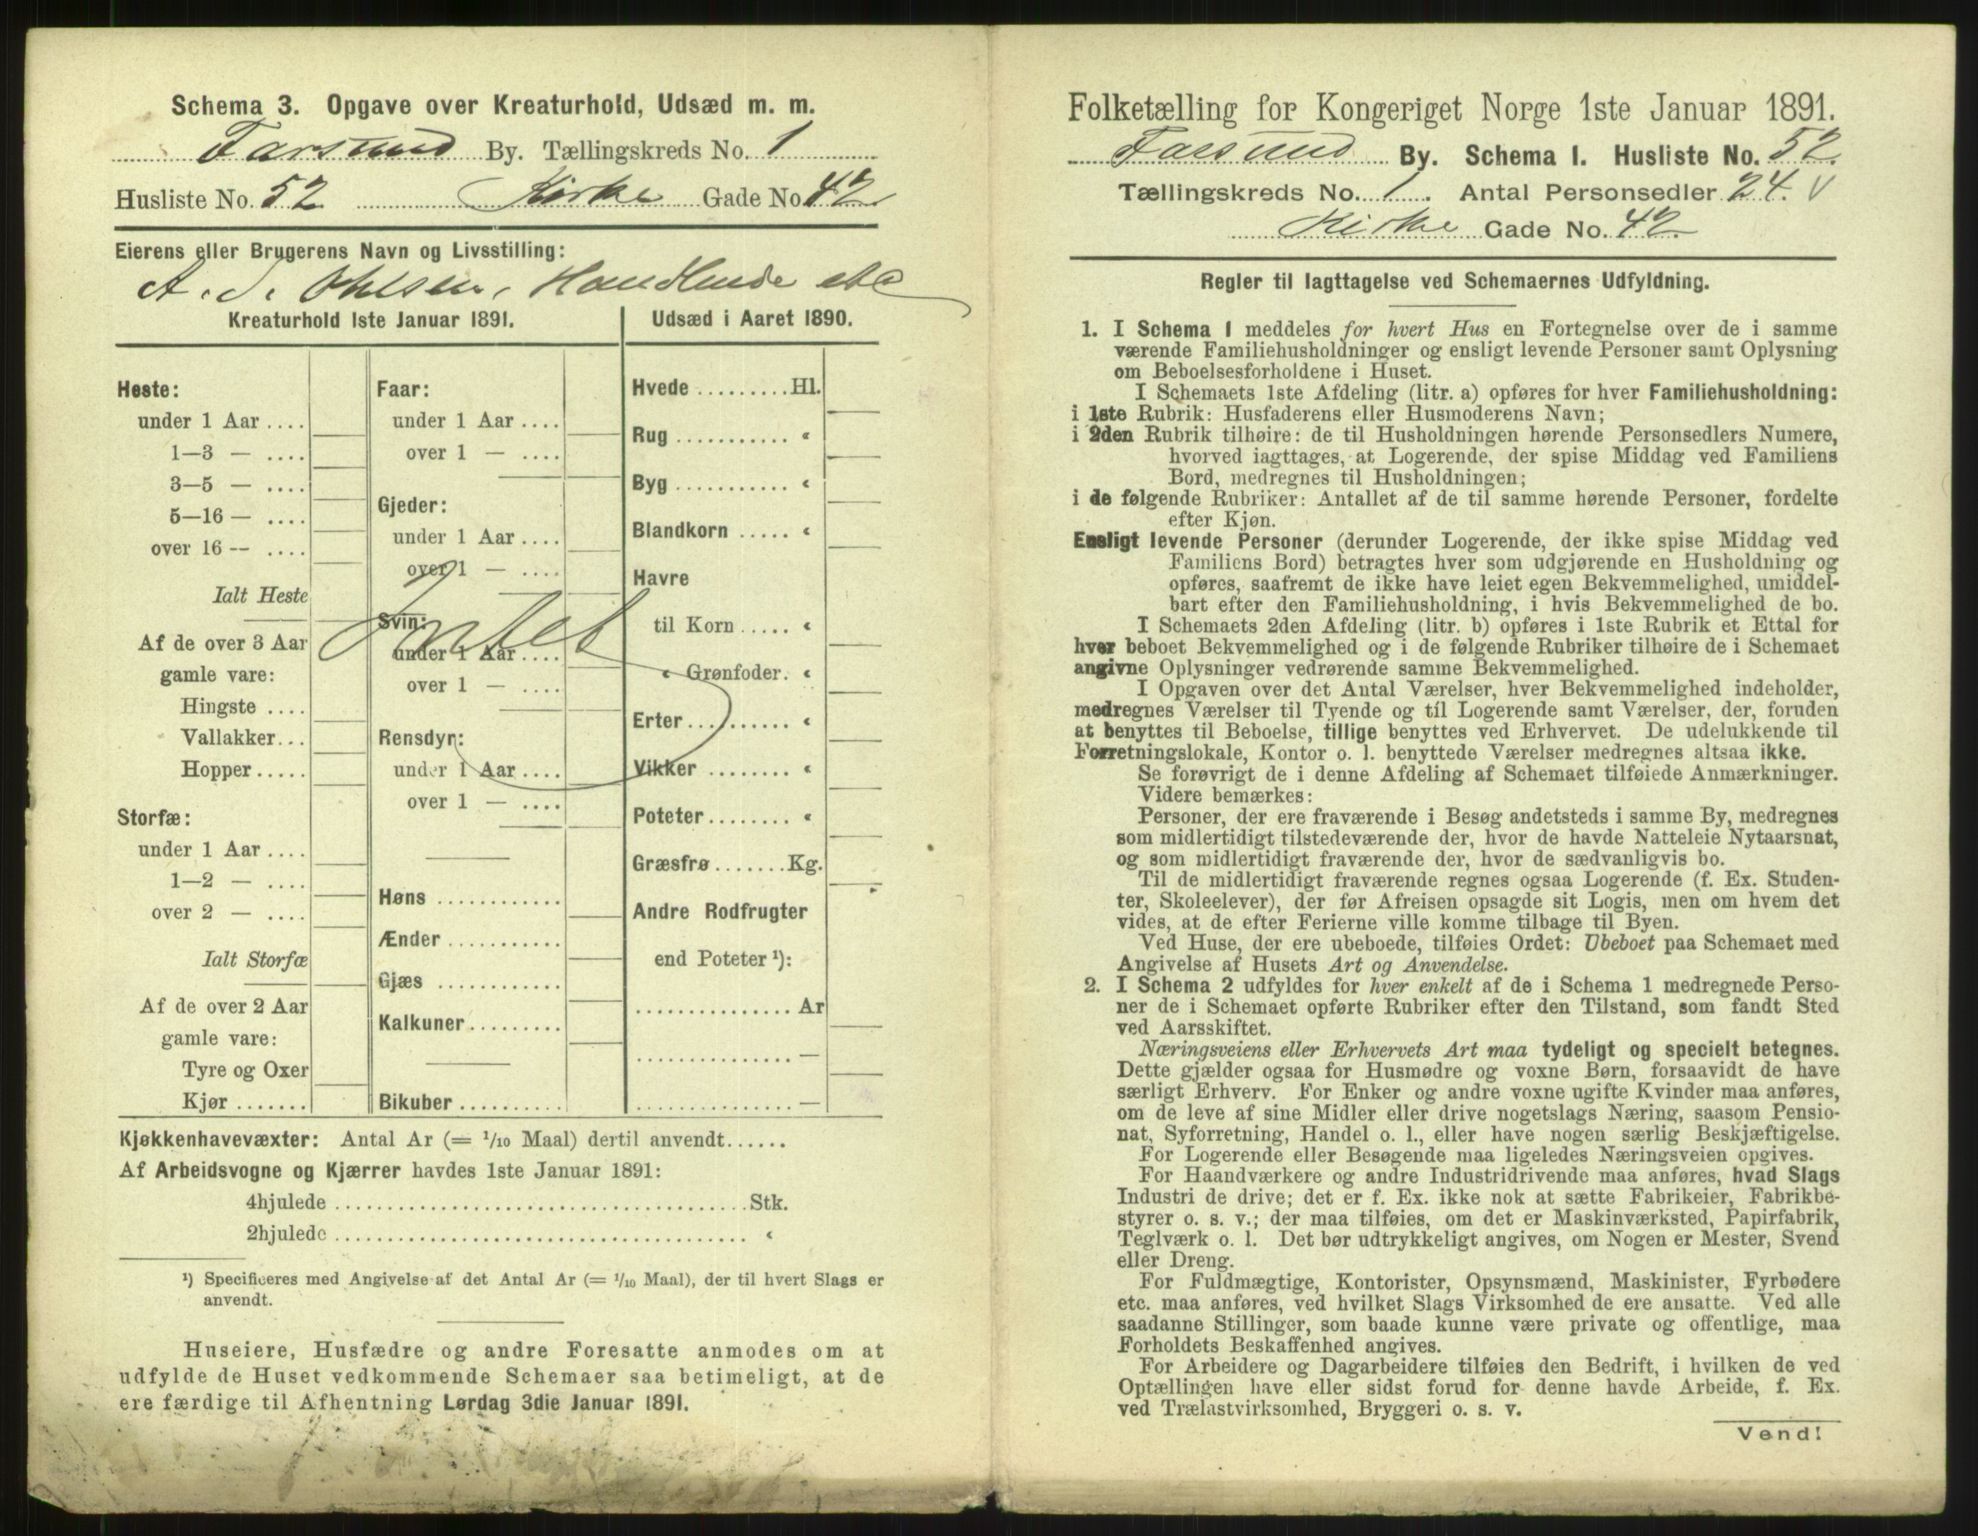 Schema 3. Opgave over Kreaturhold, Udsæd m. m.
Farsund By. Tællingskreds No. 1
Husliste No. 52 Kirke Gade No 42
Eierens eller Brugerens Navn og Livsstilling:
A. S. Ohlsen, Handlende etc
Kreaturhold 1ste Januar 1891.
Heste:
under 1 Aar ....
1—3 — ....
3—5 — ....
5—16 — ....
over 16 -- ....
Ialt Heste
Af de over 3 Aar
gamle vare:
Hingste ....
Vallakker...
Hopper.....
Storfæ:
under 1 Aar ....
1—2 — ....
over 2 — ....
Ialt Storfæ
Af de over 2 Aar
gamle vare:
Tyre og Oxer
Kjør .......
Faar:
under 1 Aar ....
over 1 — ....
Gjeder:
under 1 Aar ....
over 1 — ....
Intet
Svin:
under 1 Aar ....
over 1 — ....
Rensdyr:
under 1 Aar ....
over 1 — ....
Høns ............
Ænder ...........
Gjæs ............
Kalkuner.........
Bikuber ..........
Udsæd i Aaret 1890.
Hvede .........Hl.
Rug ........... «
Byg ........... «
Blandkorn ..... «
Havre
til Korn ..... «
« Grønfoder. «
Erter.......... «
Vikker ........ «
Poteter........ «
Græsfrø .......Kg.
Andre Rodfrugter
end Poteter ¹):
............... Ar
............... —
............... —
Kjøkkenhavevæxter: Antal Ar (= 1/10 Maal) dertil anvendt......
Af Arbeidsvogne og Kjærrer havdes 1ste Januar 1891:
4hjulede ......................................Stk.
2hjulede ...................................... «
¹) Specificeres med Angivelse af det Antal Ar (= 1/10 Maal), der til hvert Slags er
anvendt.
Huseiere, Husfædre og andre Foresatte anmodes om at
udfylde de Huset vedkommende Schemaer saa betimeligt, at de
ere færdige til Afhentning Lørdag 3die Januar 1891.
Folketælling for Kongeriget Norge 1ste Januar 1891.
Farsund By. Schema I. Husliste No. 52.
Tællingskreds No. 1. Antal Personsedler 24. v
Kirke Gade No. 42.
Regler til Iagttagelse ved Schemaernes Udfyldning.
1. I Schema I meddeles for hvert Hus en Fortegnelse over de i samme
værende Familiehusholdninger og ensligt levende Personer samt Oplysning
om Beboelsesforholdene i Huset.
I Schemaets 1ste Afdeling (litr. a) opføres for hver Familiehusholdning:
i 1ste Rubrik: Husfaderens eller Husmoderens Navn;
i 2den Rubrik tilhøire: de til Husholdningen hørende Personsedlers Numere,
hvorved iagttages, at Logerende, der spise Middag ved Familiens
Bord, medregnes til Husholdningen;
i de følgende Rubriker: Antallet af de til samme hørende Personer, fordelte
efter Kjøn.
Ensligt levende Personer (derunder Logerende, der ikke spise Middag ved
Familiens Bord) betragtes hver som udgjørende en Husholdning og
opføres, saafremt de ikke have leiet egen Bekvemmelighed, umiddel-
bart efter den Familiehusholdning, i hvis Bekvemmelighed de bo.
I Schemaets 2den Afdeling (litr. b) opføres i 1ste Rubrik et Ettal for
hver beboet Bekvemmelighed og i de følgende Rubriker tilhøire de i Schemaet
angivne Oplysninger vedrørende samme Bekvemmelighed.
I Opgaven over det Antal Værelser, hver Bekvemmelighed indeholder,
medregnes Værelser til Tyende og til Logerende samt Værelser, der, foruden
at benyttes til Beboelse, tillige benyttes ved Erhvervet. De udelukkende til
Forretningslokale, Kontor o. l. benyttede Værelser medregnes altsaa ikke.
Se forøvrigt de i denne Afdeling af Schemaet tilføiede Anmærkninger.
Videre bemærkes:
Personer, der ere fraværende i Besøg andetsteds i samme By, medregnes
som midlertidigt tilstedeværende der, hvor de havde Natteleie Nytaarsnat,
og som midlertidigt fraværende der, hvor de sædvanligvis bo.
Til de midlertidigt fraværende regnes ogsaa Logerende (f. Ex. Studen-
ter, Skoleelever), der før Afreisen opsagde sit Logis, men om hvem det
vides, at de efter Ferierne ville komme tilbage til Byen.
Ved Huse, der ere ubeboede, tilføies Ordet: Ubeboet paa Schemaet med
Angivelse af Husets Art og Anvendelse.
2. I Schema 2 udfyldes for hver enkelt af de i Schema 1 medregnede Perso-
ner de i Schemaet opførte Rubriker efter den Tilstand, som fandt Sted
ved Aarsskiftet.
Næringsveiens eller Erhvervets Art maa tydeligt og specielt betegnes.
Dette gjælder ogsaa for Husmødre og voxne Børn, forsaavidt de have
særligt Erhverv. For Enker og andre voxne ugifte Kvinder maa anføres,
om de leve af sine Midler eller drive nogetslags Næring, saasom Pensio-
nat, Syforretning, Handel o. l., eller have nogen særlig Beskjæftigelse.
For Logerende eller Besøgende maa ligeledes Næringsveien opgives.
For Haandværkere og andre Industridrivende maa anføres, hvad Slags
Industri de drive; det er f. Ex. ikke nok at sætte Fabrikeier, Fabrikbe-
styrer o. s. v.; der maa tilføies, om det er Maskinværksted, Papirfabrik,
Teglværk o. l. Det bør udtrykkeligt angives, om Nogen er Mester, Svend
eller Dreng.
For Fuldmægtige, Kontorister, Opsynsmænd, Maskinister, Fyrbødere
etc. maa anføres, ved hvilket Slags Virksomhed de ere ansatte. Ved alle
saadanne Stillinger, som baade kunne være private og offentlige, maa
Forholdets Beskaffenhed angives.
For Arbeidere og Dagarbeidere tilføies den Bedrift, i hvilken de ved
Optællingen have eller sidst forud for denne havde Arbeide, f. Ex.
ved Trælastvirksomhed, Bryggeri o. s. v.
Vend!